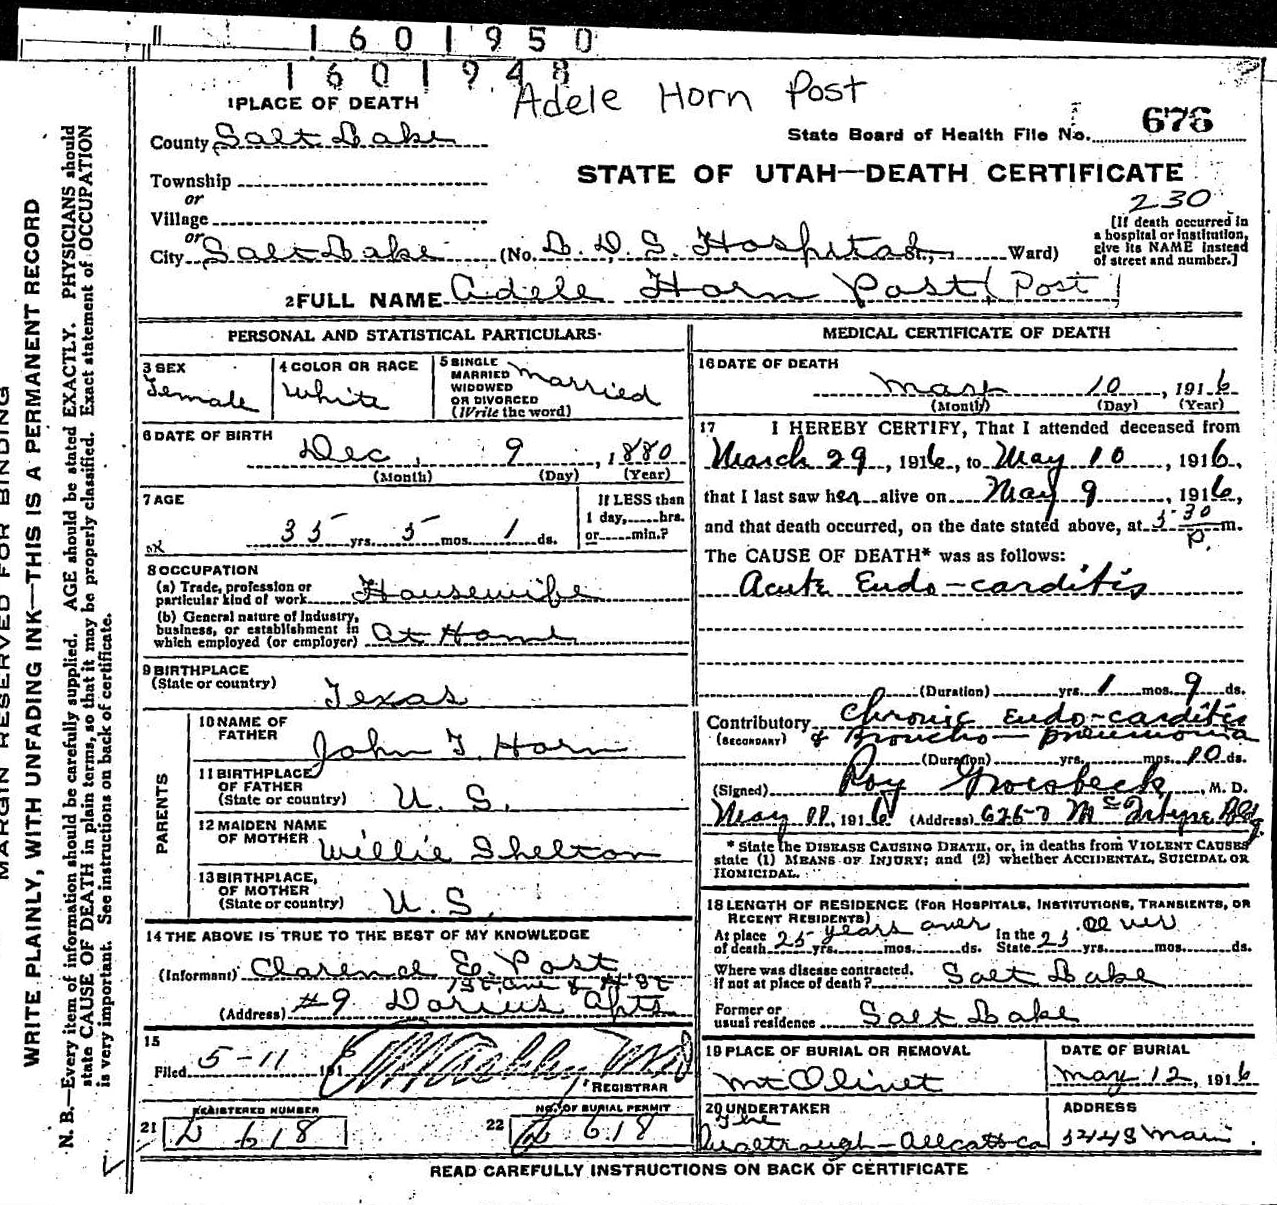 1601950
1601948
Adele Horn Post
1 PLACE OF DEATH
County Salt Lake
State Board of Health File No. 676
Township
STATE OF UTAH—DEATH CERTIFICATE
or
Village
230
or
City Salt Lake (No. L. D. S. Hospital, Ward)
[If death occurred in
a hospital or institution,
give its NAME instead
of street and number.]
2 FULL NAME Adele Horn Post (Post)
PERSONAL AND STATISTICAL PARTICULARS
3 SEX
Female
4 COLOR OR RACE
White
5 SINGLE
MARRIED
WIDOWED
OR DIVORCED
(Write the word)
Married
6 DATE OF BIRTH
Dec. 9, 1880
(Month) (Day) (Year)
7 AGE
35 yrs. 5 mos. 1 ds.
If LESS than
1 day, hrs.
or min.?
8 OCCUPATION
(a) Trade, profession or
particular kind of work Housewife
(b) General nature of Industry,
business, or establishment in
which employed (or employer) At Home
9 BIRTHPLACE
(State or country)
Texas
PARENTS
10 NAME OF
FATHER
John T. Horn
11 BIRTHPLACE
OF FATHER
(State or country)
U. S.
12 MAIDEN NAME
OF MOTHER
Willie Shelton
13 BIRTHPLACE,
OF MOTHER
(State or country)
U. S.
14 THE ABOVE IS TRUE TO THE BEST OF MY KNOWLEDGE
(Informant) Clarence E. Post
1st Ave & H St
(Address) #9 Darius Apts
15
Filed 5-11 1916
REGISTRAR
REGISTERED NUMBER
21 D 618
NO. OF BURIAL PERMIT
22 D 618
MEDICAL CERTIFICATE OF DEATH
16 DATE OF DEATH
May 10, 1916
(Month) (Day) (Year)
17 I HEREBY CERTIFY, That I attended deceased from
March 29, 1916, to May 10, 1916,
that I last saw her alive on May 9, 1916,
and that death occurred, on the date stated above, at 5-30 P. m.
The CAUSE OF DEATH* was as follows:
Acute Endo-carditis
(Duration) yrs. 1 mos. 9 ds.
Contributory Chronic Endo-carditis
(SECONDARY) & Broncho-pneumonia
(Duration) yrs. mos. 10 ds.
(Signed) Roy Groesbeck, M. D.
May 11, 1916 (Address) 626-7 McIntyre Bldg.
* State the DISEASE CAUSING DEATH, or, in deaths from VIOLENT CAUSES
state (1) MEANS OF INJURY; and (2) whether ACCIDENTAL, SUICIDAL OR
HOMICIDAL.
18 LENGTH OF RESIDENCE (FOR HOSPITALS, INSTITUTIONS, TRANSIENTS, OR
RECENT RESIDENTS)
At place
of death 25 years over yrs. mos. ds.
In the
State 25 over yrs. mos. ds.
Where was disease contracted,
If not at place of death? Salt Lake
Former or
usual residence Salt Lake
19 PLACE OF BURIAL OR REMOVAL
Mt Olivet
DATE OF BURIAL
May 12, 1916
20 UNDERTAKER
The
ADDRESS
Main
READ CAREFULLY INSTRUCTIONS ON BACK OF CERTIFICATE
MARGIN RESERVED FOR BINDING
WRITE PLAINLY, WITH UNFADING INK—THIS IS A PERMANENT RECORD
N. B.—Every item of information should be carefully supplied. AGE should be stated EXACTLY. PHYSICIANS should
state CAUSE OF DEATH in plain terms, so that it may be properly classified. Exact statement of OCCUPATION
is very important. See instructions on back of certificate.